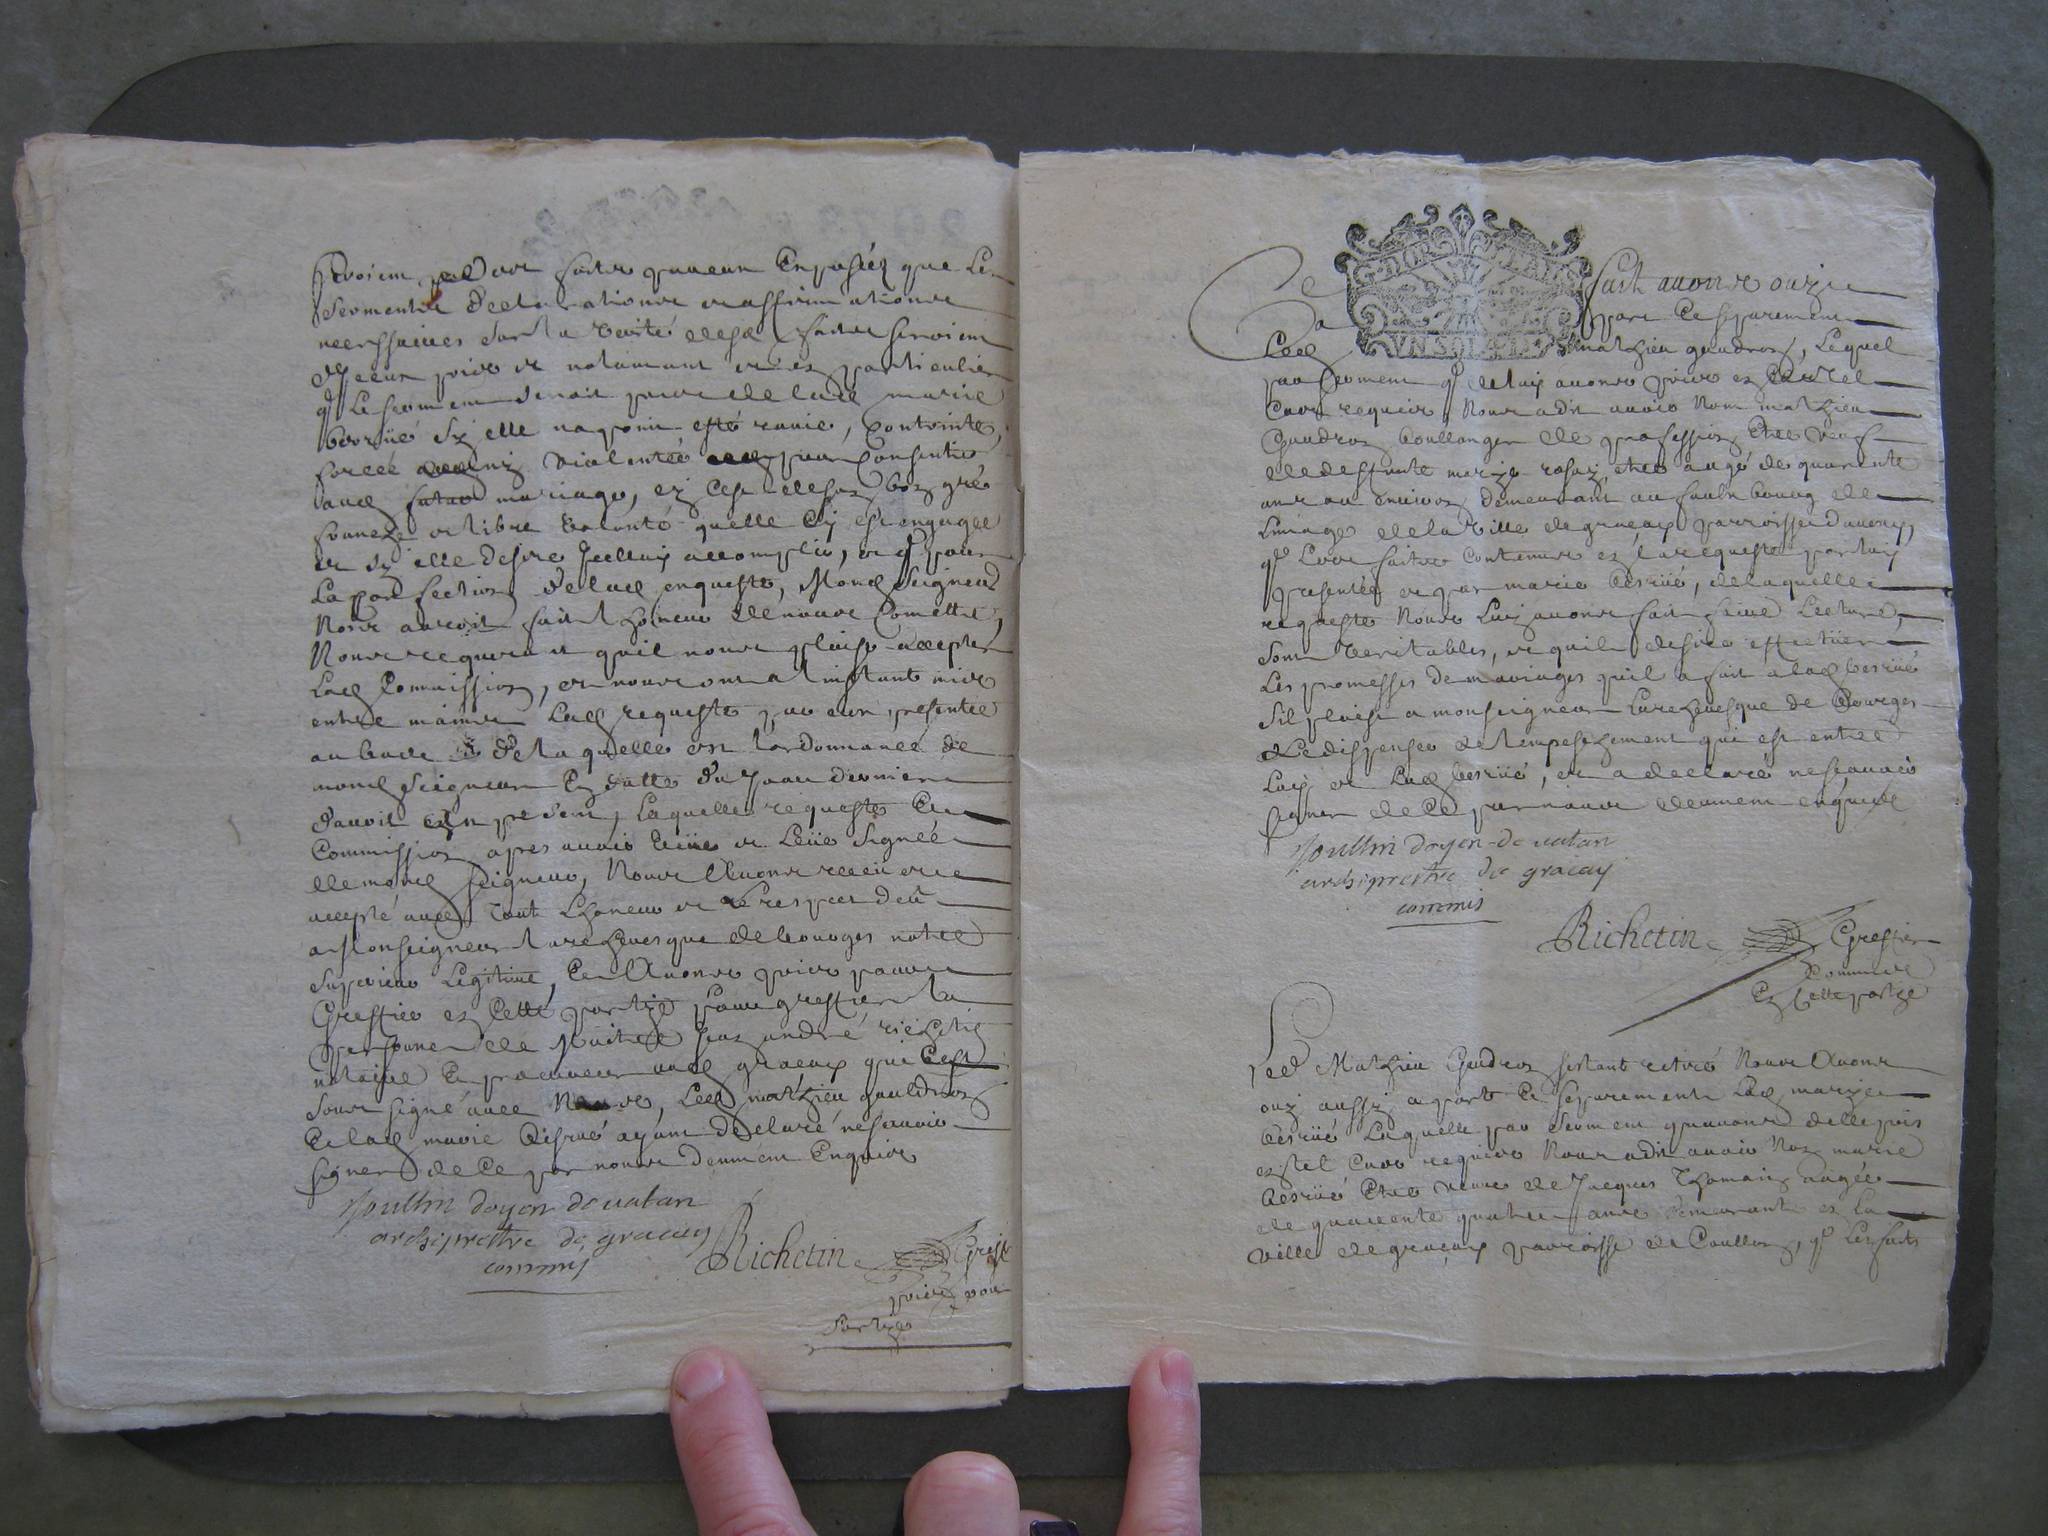 seroient par eux faits parceux Exposéz que Les
serments declarations et affirmations
necessaires sur la verité desd faits seroient
d'jceux pris et notament et en particulier
q̃ Le serment seroit pris de lad marie
besrué sy elle na point esté ravie, contrinte,
forcée ny violentée pour Consentir
aud mariage, ey Cest de son bon gré
franche et libre volonté quelle sy est engagée
et sy elle desire jcelluy accomplir, et q̃ pour
La perfection de lad enqueste, Mond Seigneur
Nous auroit fait lhoneur de nous Comettre,
Nous requerant quil nous plaise accepter
Lad Commission, et nous ont a linstant mis
entre mains Lad requeste par eux presentée
au bas de laquelle est lordonnance de
mond Seigneur En datte du jour dernier
d'avril present, Laquelle requeste Et
Commission apres avoir veue et Leüe signée
de mond seigneur, Nous Avons receu et
accepté avec tout Lhoneur et Le respect deü
a Monseigneur larchevesque de bourges notre
superieur Legitime, Et Avons pris pour
Greffier en Cette partye pour greffier la
personne de Maitre jean andré richetin
notaire Et procureur aud graçay qui Cest
soussigné avec Nous, Led mathieu gauldron
Et lad marie besrué ayant declaré ne scavoir
signer de Ce par nous deument Enquis
Moullin doyen de vatan
archiprestre de gracay
commis
Richetin Greff
pris pour
partye
Ce fait avons ouy
a part Et separement
Led Mathieu gaudron, Lequel
par serment q̃ de luy avons pris en tel
Cas requis Nous a dit avoir Nom mathieu
Gaudron boullanger de profession Etre veuf
de deffunte marye rosay, etre aagé de quarente
ans ou environ demeurant au faulxbourg de
Limage de la ville de graçay parroisse davary,
q̃ Les faits Contenus en la requeste par luy
presentée et par marie besrüé, de laquelle
requeste Nous Luy avons fait faire Lecture,
sont veritables, et quil desire effectuer
Les promesses de mariages quil a fait a lad besrüé
sil plaise a monseigneur Larchevesque de Bourges
Le dispenser de lempeschement qui est entre
Luy et Lad besrüé, et a declaré ne scavoir
signer de Ce par nous deument enquis
Moullin doyen de vatan
archiprestre de graçay
commis
Richetin Greffier
Commis
En Cette partye
Led Mathieu Gaudron sestant retiré Nous Avons
ouy aussy a part Et separement Lad marye
besrüé Laquelle par serment quavons delle pris
en tel Cas requis Nous a dit avoir Nom marie
besrüé Etre veuve de Jacques Thomas aagée
de quarente quatre ans demeurant en La
ville de graçay parroisse de Coullon, q̃ Les faits